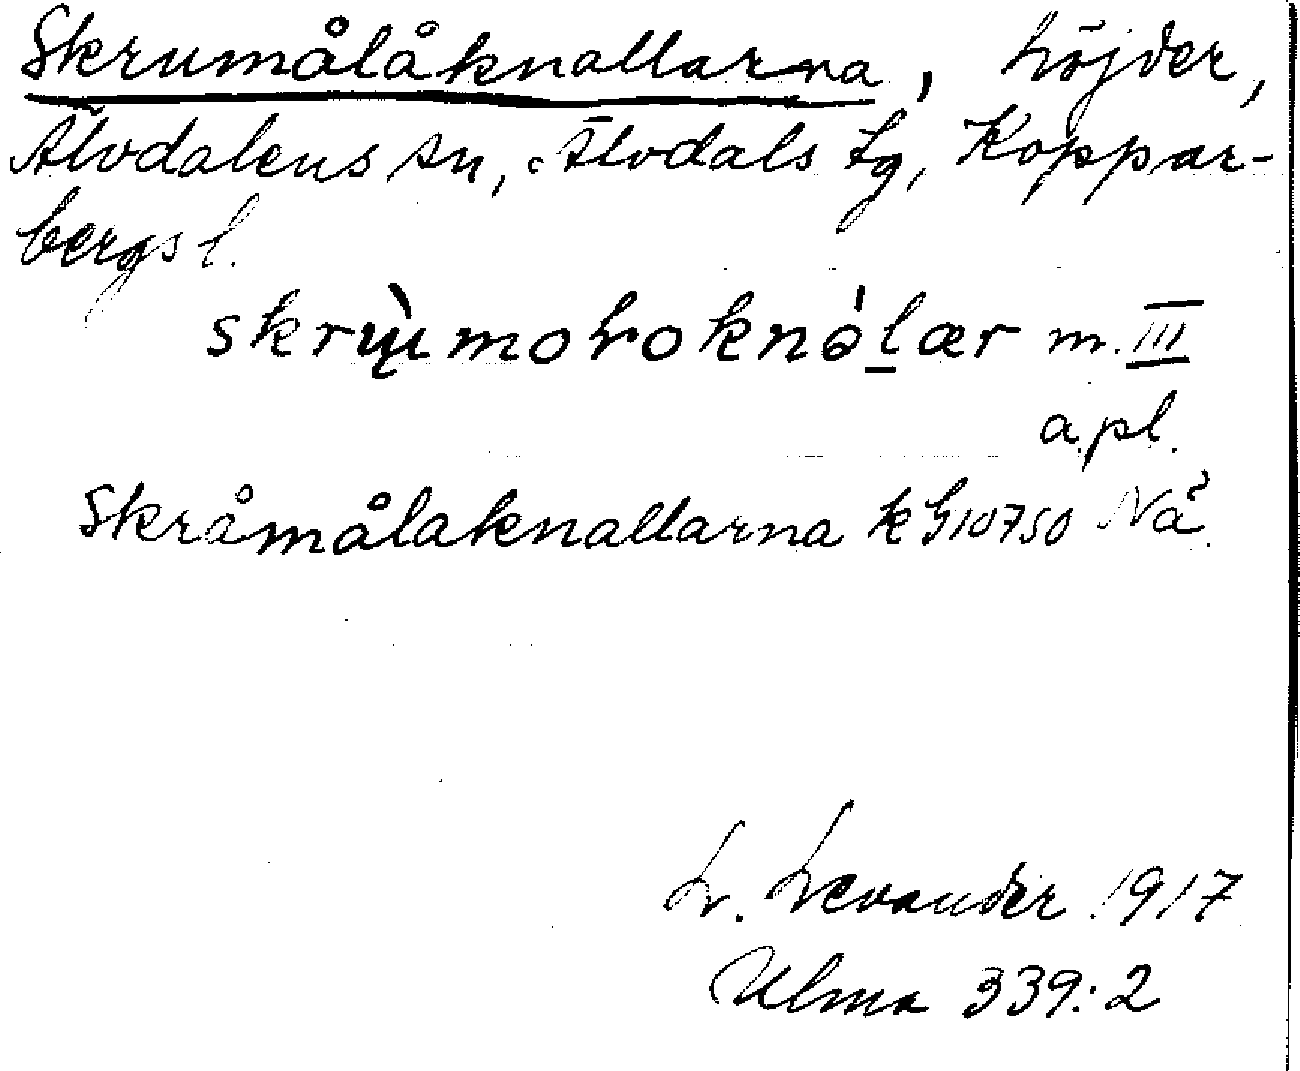 Skrumålåknallarna, höjder,
Älvdalens sn, Älvdals tg, Koppar-
bergs l.
m. III
a.pl.
Skråmålaknallarna k G10750 Nå.
L. Levander 1917
Ulma 339:2